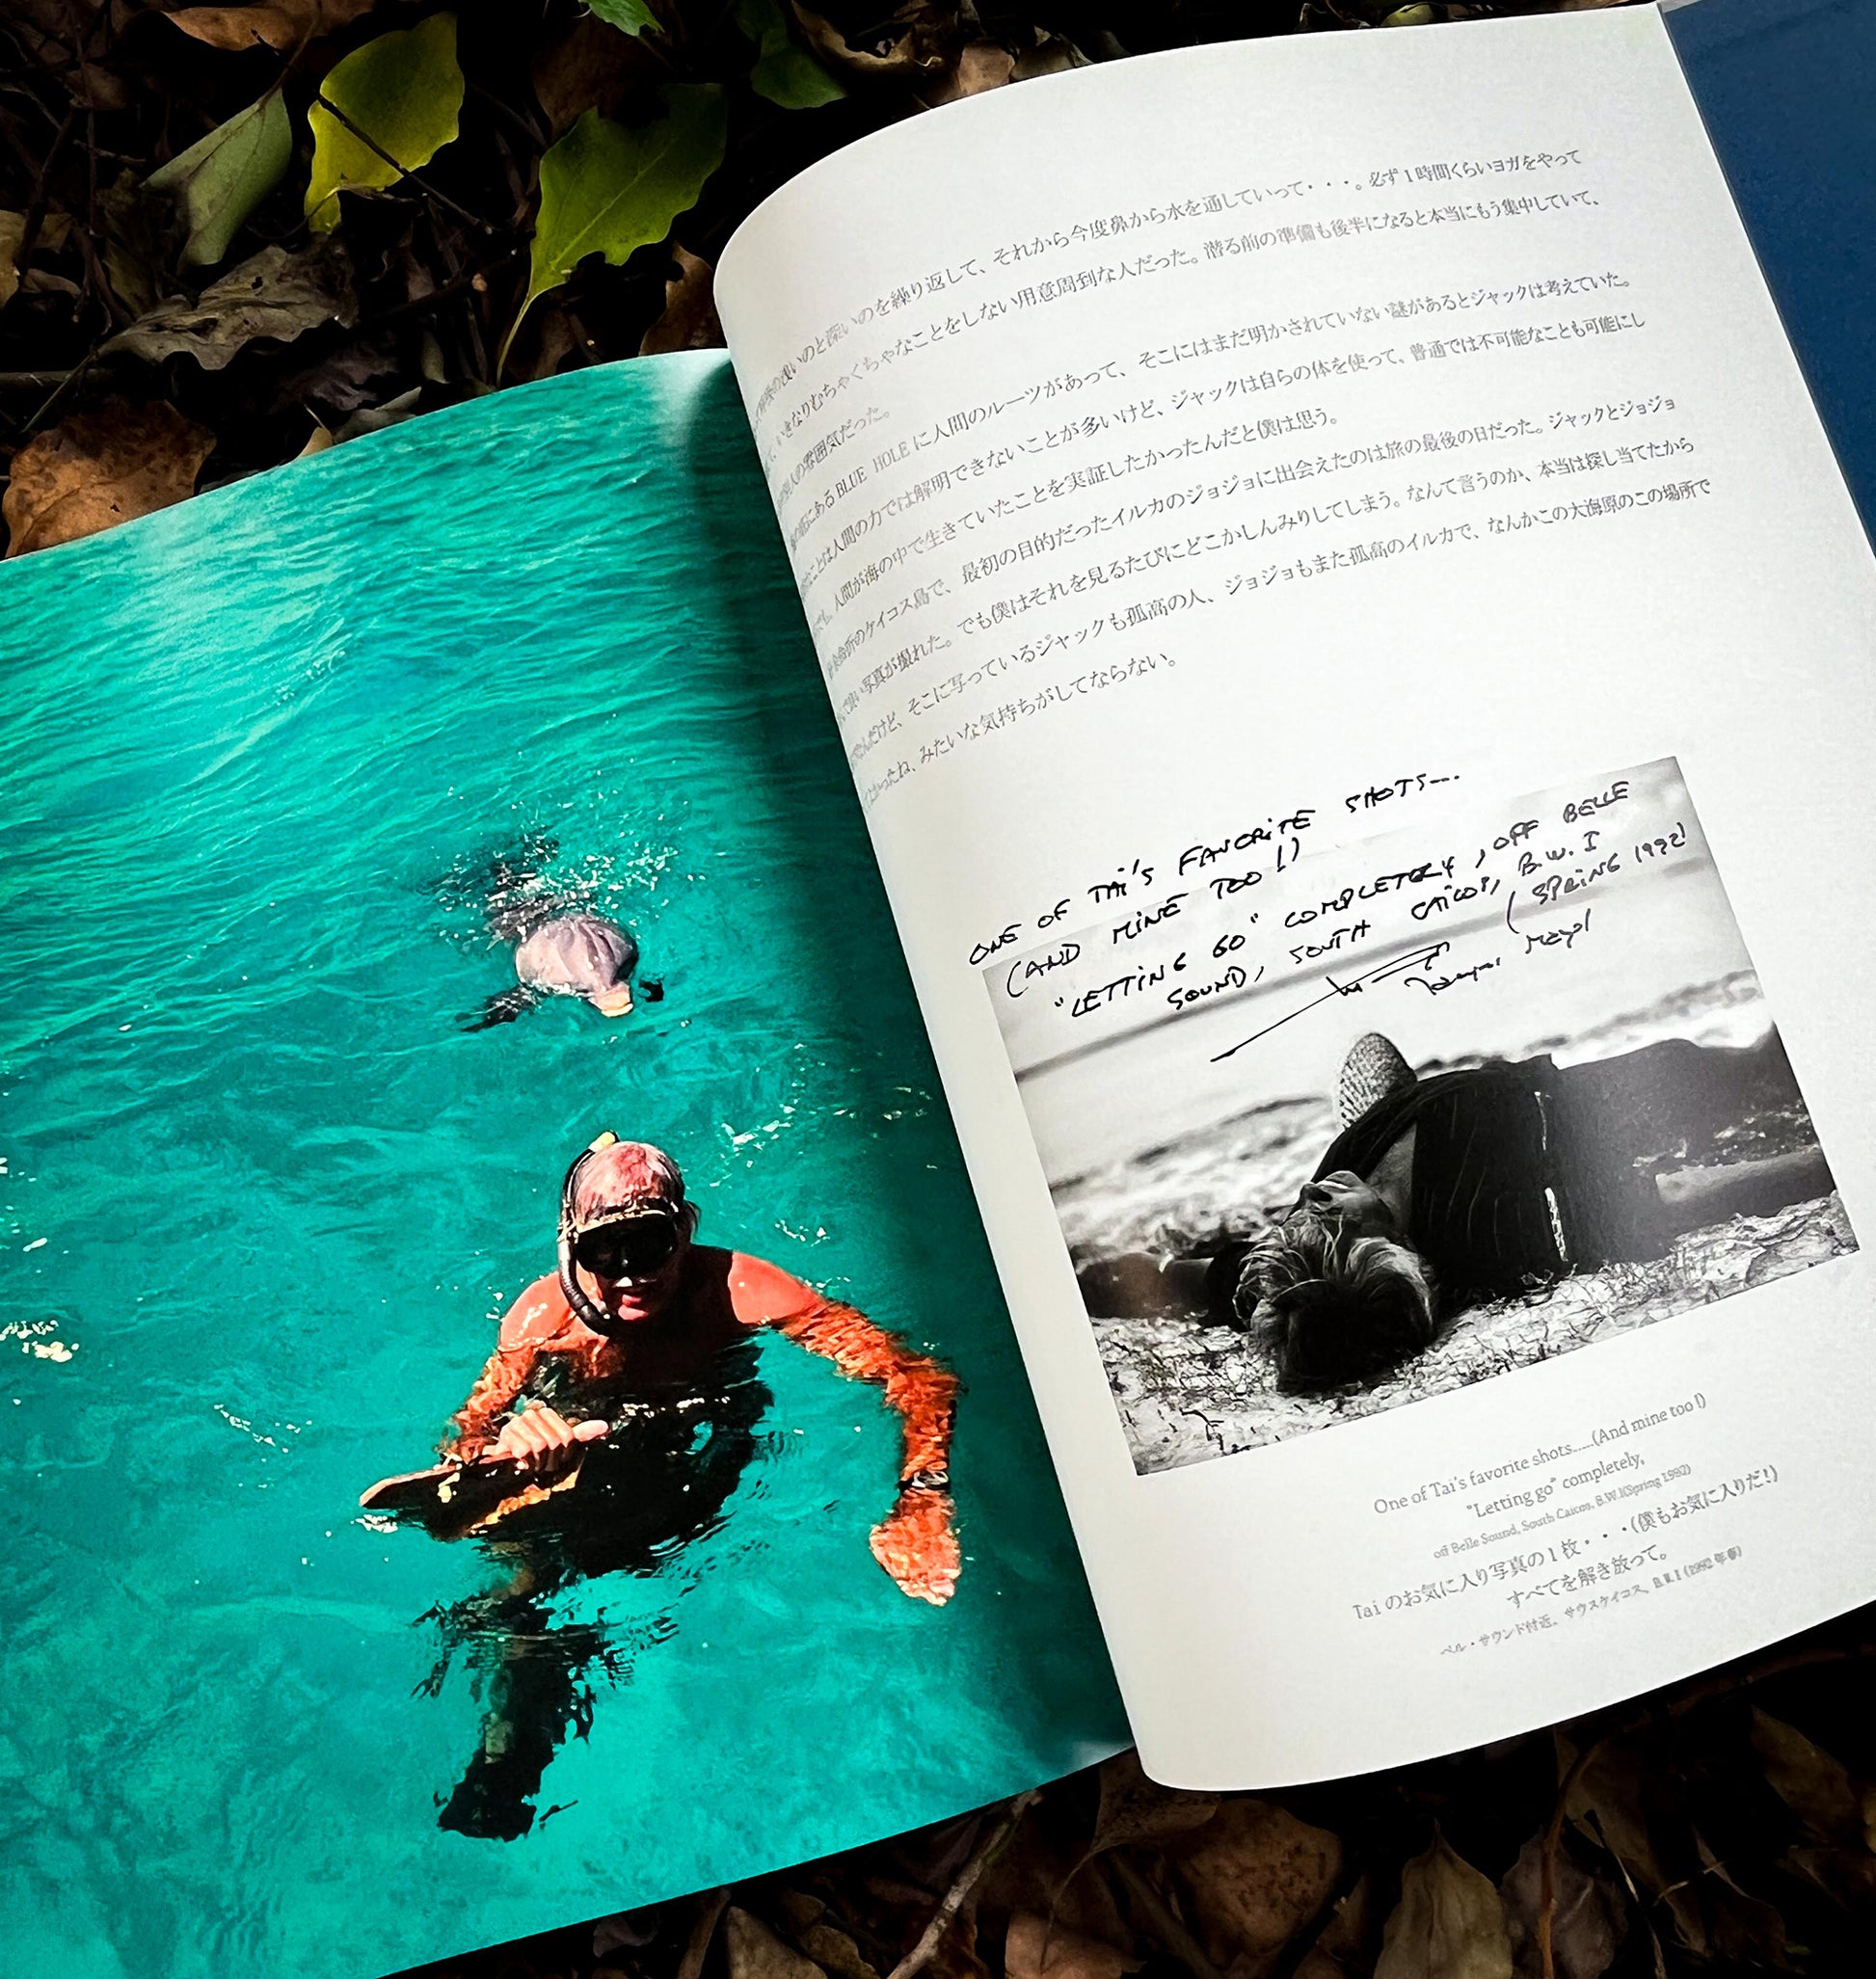 浅いのと深いのを繰り返して、それから今度鼻から水を通していって・・・。必ず1時間くらいヨガをやって
、いきなりむちゃくちゃなことをしない用意周到な人だった。潜る前の準備も後半になると本当にもう集中していて、
人の雰囲気だった。
にあるBLUE HOLEに人間のルーツがあって、そこにはまだ明かされていない謎があるとジャックは考えていた。
ことは人間の力では解明できないことが多いけど、ジャックは自らの体を使って、普通では不可能なことも可能にし
、人間が海の中で生きていたことを実証したかったんだと僕は思う。
のケイコス島で、最初の目的だったイルカのジョジョに出会えたのは旅の最後の日だった。ジャックとジョジョ
良い写真が撮れた。でも僕はそれを見るたびにどこかしんみりしてしまう。なんて言うのか、本当は探し当てたから
んだけど、そこに写っているジャックも孤高の人、ジョジョもまた孤高のイルカで、なんかこの大海原のこの場所で
ったね、みたいな気持ちがしてならない。
ONE OF TAi'S FAVORiTE SHOTS....
(AND MiNE TOO !)
"LETTiNG GO" COMPLETELY, OFF BELLE
SOUND, SOUTH CAiCOS, B.W.I
(SPRiNG 1992)
Jacques Mayol
One of Tai's favorite shots......(And mine too !)
"Letting go" completely,
off Belle Sound, South Caicos, B.W.I(Spring 1992)
Taiのお気に入り写真の1枚・・・(僕もお気に入りだ!)
すべてを解き放って。
ベル・サウンド付近、サウスケイコス、B.W.I (1992年春)